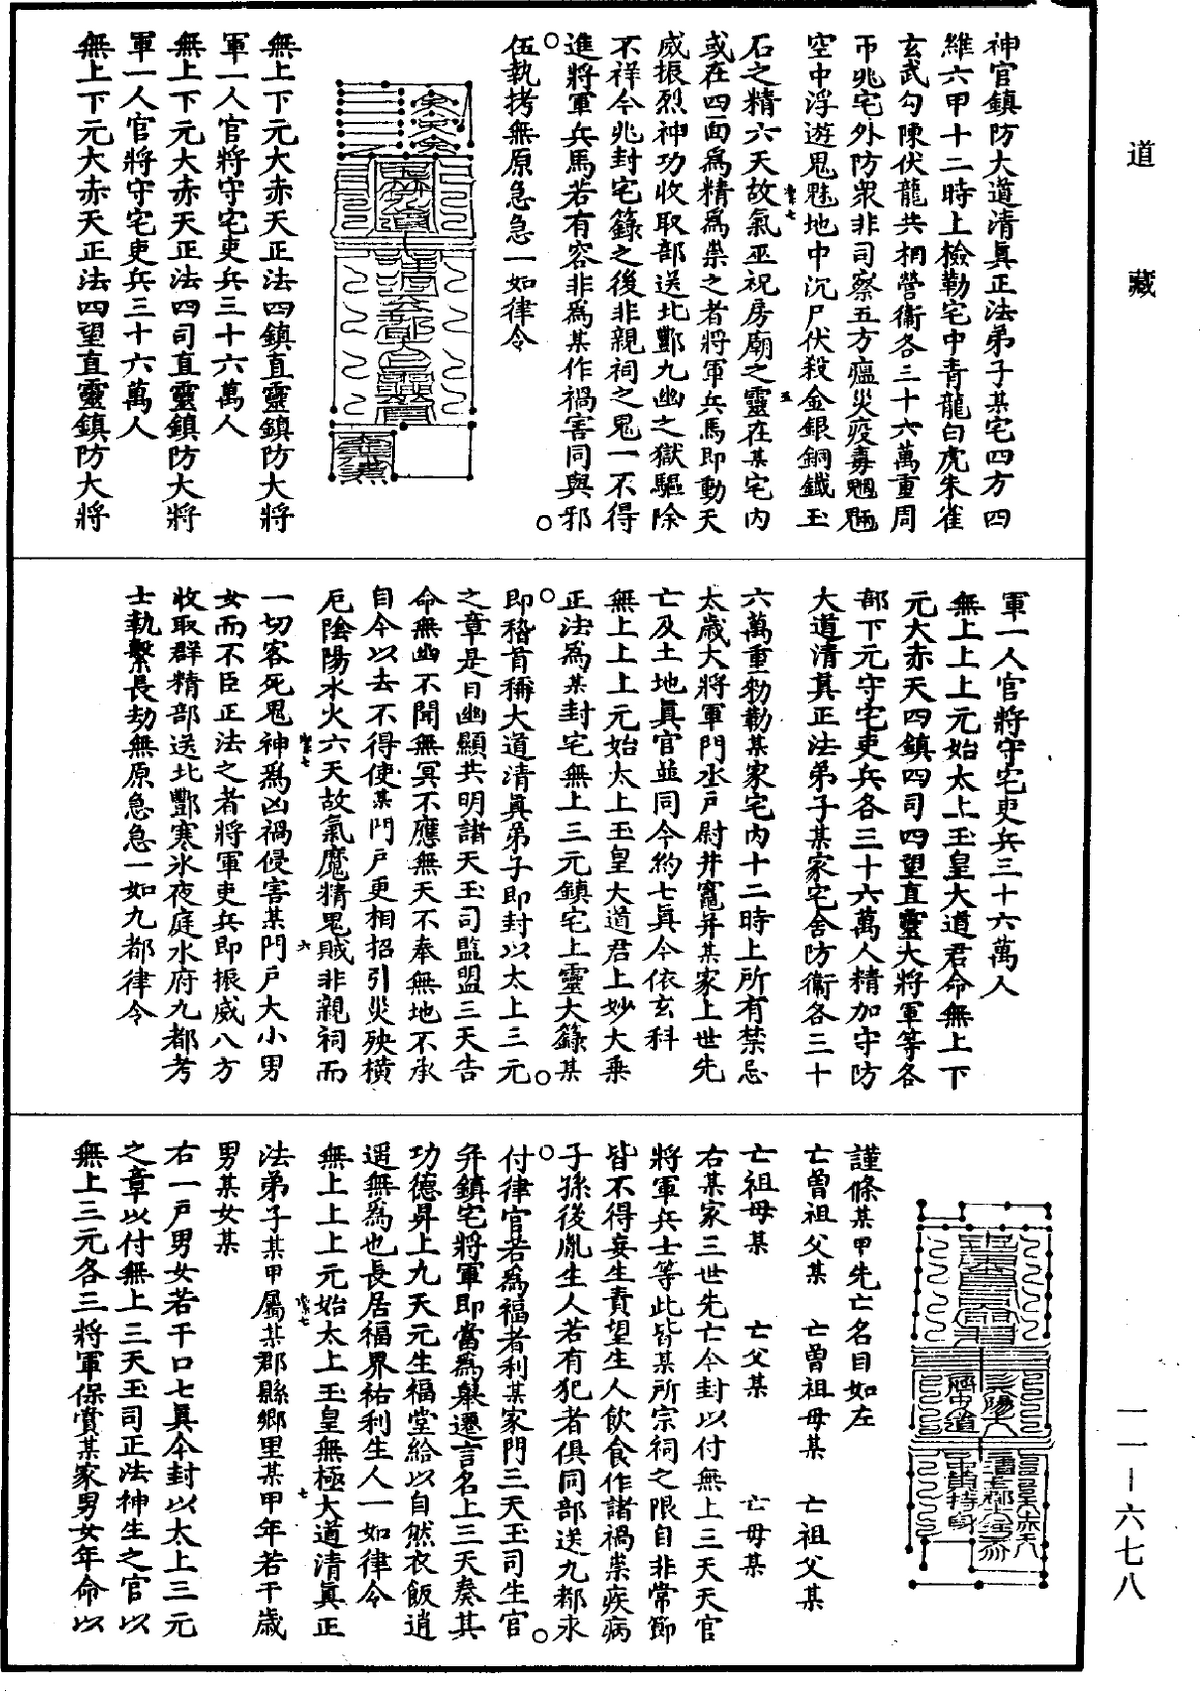 道藏
神官鎮防大道清真正法弟子某宅四方四
維六甲十二時上檢勒宅中青龍白虎朱雀
玄武勾陳伏龍共相營衛各三十六萬重周
帀兆宅外防衆非司察五方瘟災疫毒魍魎
空中浮遊鬼魅地中沉尸伏殺金銀銅鐵玉
石之精六天故氣巫祝房廟之靈在某宅內
或在四面為精為祟之者將軍兵馬即動天
威振烈神功收取部送北酆九幽之獄驅除
不祥今兆封宅籙之後非親祠之鬼一不得
進將軍兵馬若有容非為某作禍害同與邪
伍執拷無原急急一如律令
無上下元大赤天正法四鎮直靈鎮防大將
軍一人官將守宅吏兵三十六萬人
無上下元大赤天正法四司直靈鎮防大將
軍一人官將守宅吏兵三十六萬人
無上下元大赤天正法四望直靈鎮防大將
軍一人官將守宅吏兵三十六萬人
無上上上元始太上玉皇大道君命無上下
元大赤天四鎮四司四望直靈大將軍等各
部下元守宅吏兵各三十六萬人精加守防
大道清真正法弟子某家宅舍防衛各三十
六萬重勑勒某家宅內十二時上所有禁忌
太歲大將軍門丞戶尉井竈并某家上世先
亡及土地真官並同今約七真今依玄科
無上上上元始太上玉皇大道君上妙大乘
正法為某封宅無上三元鎮宅上靈大籙某
即稽首稱大道清真弟子即封以太上三元
之章是日幽顯共明諸天玉司監盟三天告
命無幽不聞無冥不應無天不奉無地不承
自今以去不得使某門戶更相招引災殃橫
厄陰陽水火六天故氣魔精鬼賊非親祠而
一切客死鬼神為凶禍侵害某門戶大小男
女而不臣正法之者將軍吏兵即振威八方
收取群精部送北酆寒氷夜庭水府九都考
士執繫長劫無原急急一如九都律令
謹條某甲先亡名目如左
亡曾祖父某 亡曾祖母某 亡祖父某
亡祖母某 亡父某 亡母某
右某家三世先亡今封以付無上三天天官
將軍兵士等此皆某所宗祠之限自非常節
皆不得妄生責望生人飲食作諸禍祟疾病
子孫後胤生人若有犯者俱同部送九都求
付律官若為福者利某家門三天玉司生官
并鎮宅將軍即當為舉遷言名上三天奏其
功德昇上九天元生福堂給以自然衣飯逍
遥無為也長居福界祐利生人一如律令
無上上上元始太上玉皇無極大道清真正
法弟子某甲屬某郡縣鄉里某甲年若干歲
男某女某
右一戶男女若干口七真今封以太上三元
之章以付無上三天玉司正法神生之官以
無上三元各三將軍保賞某家男女年命以
一一－六七八